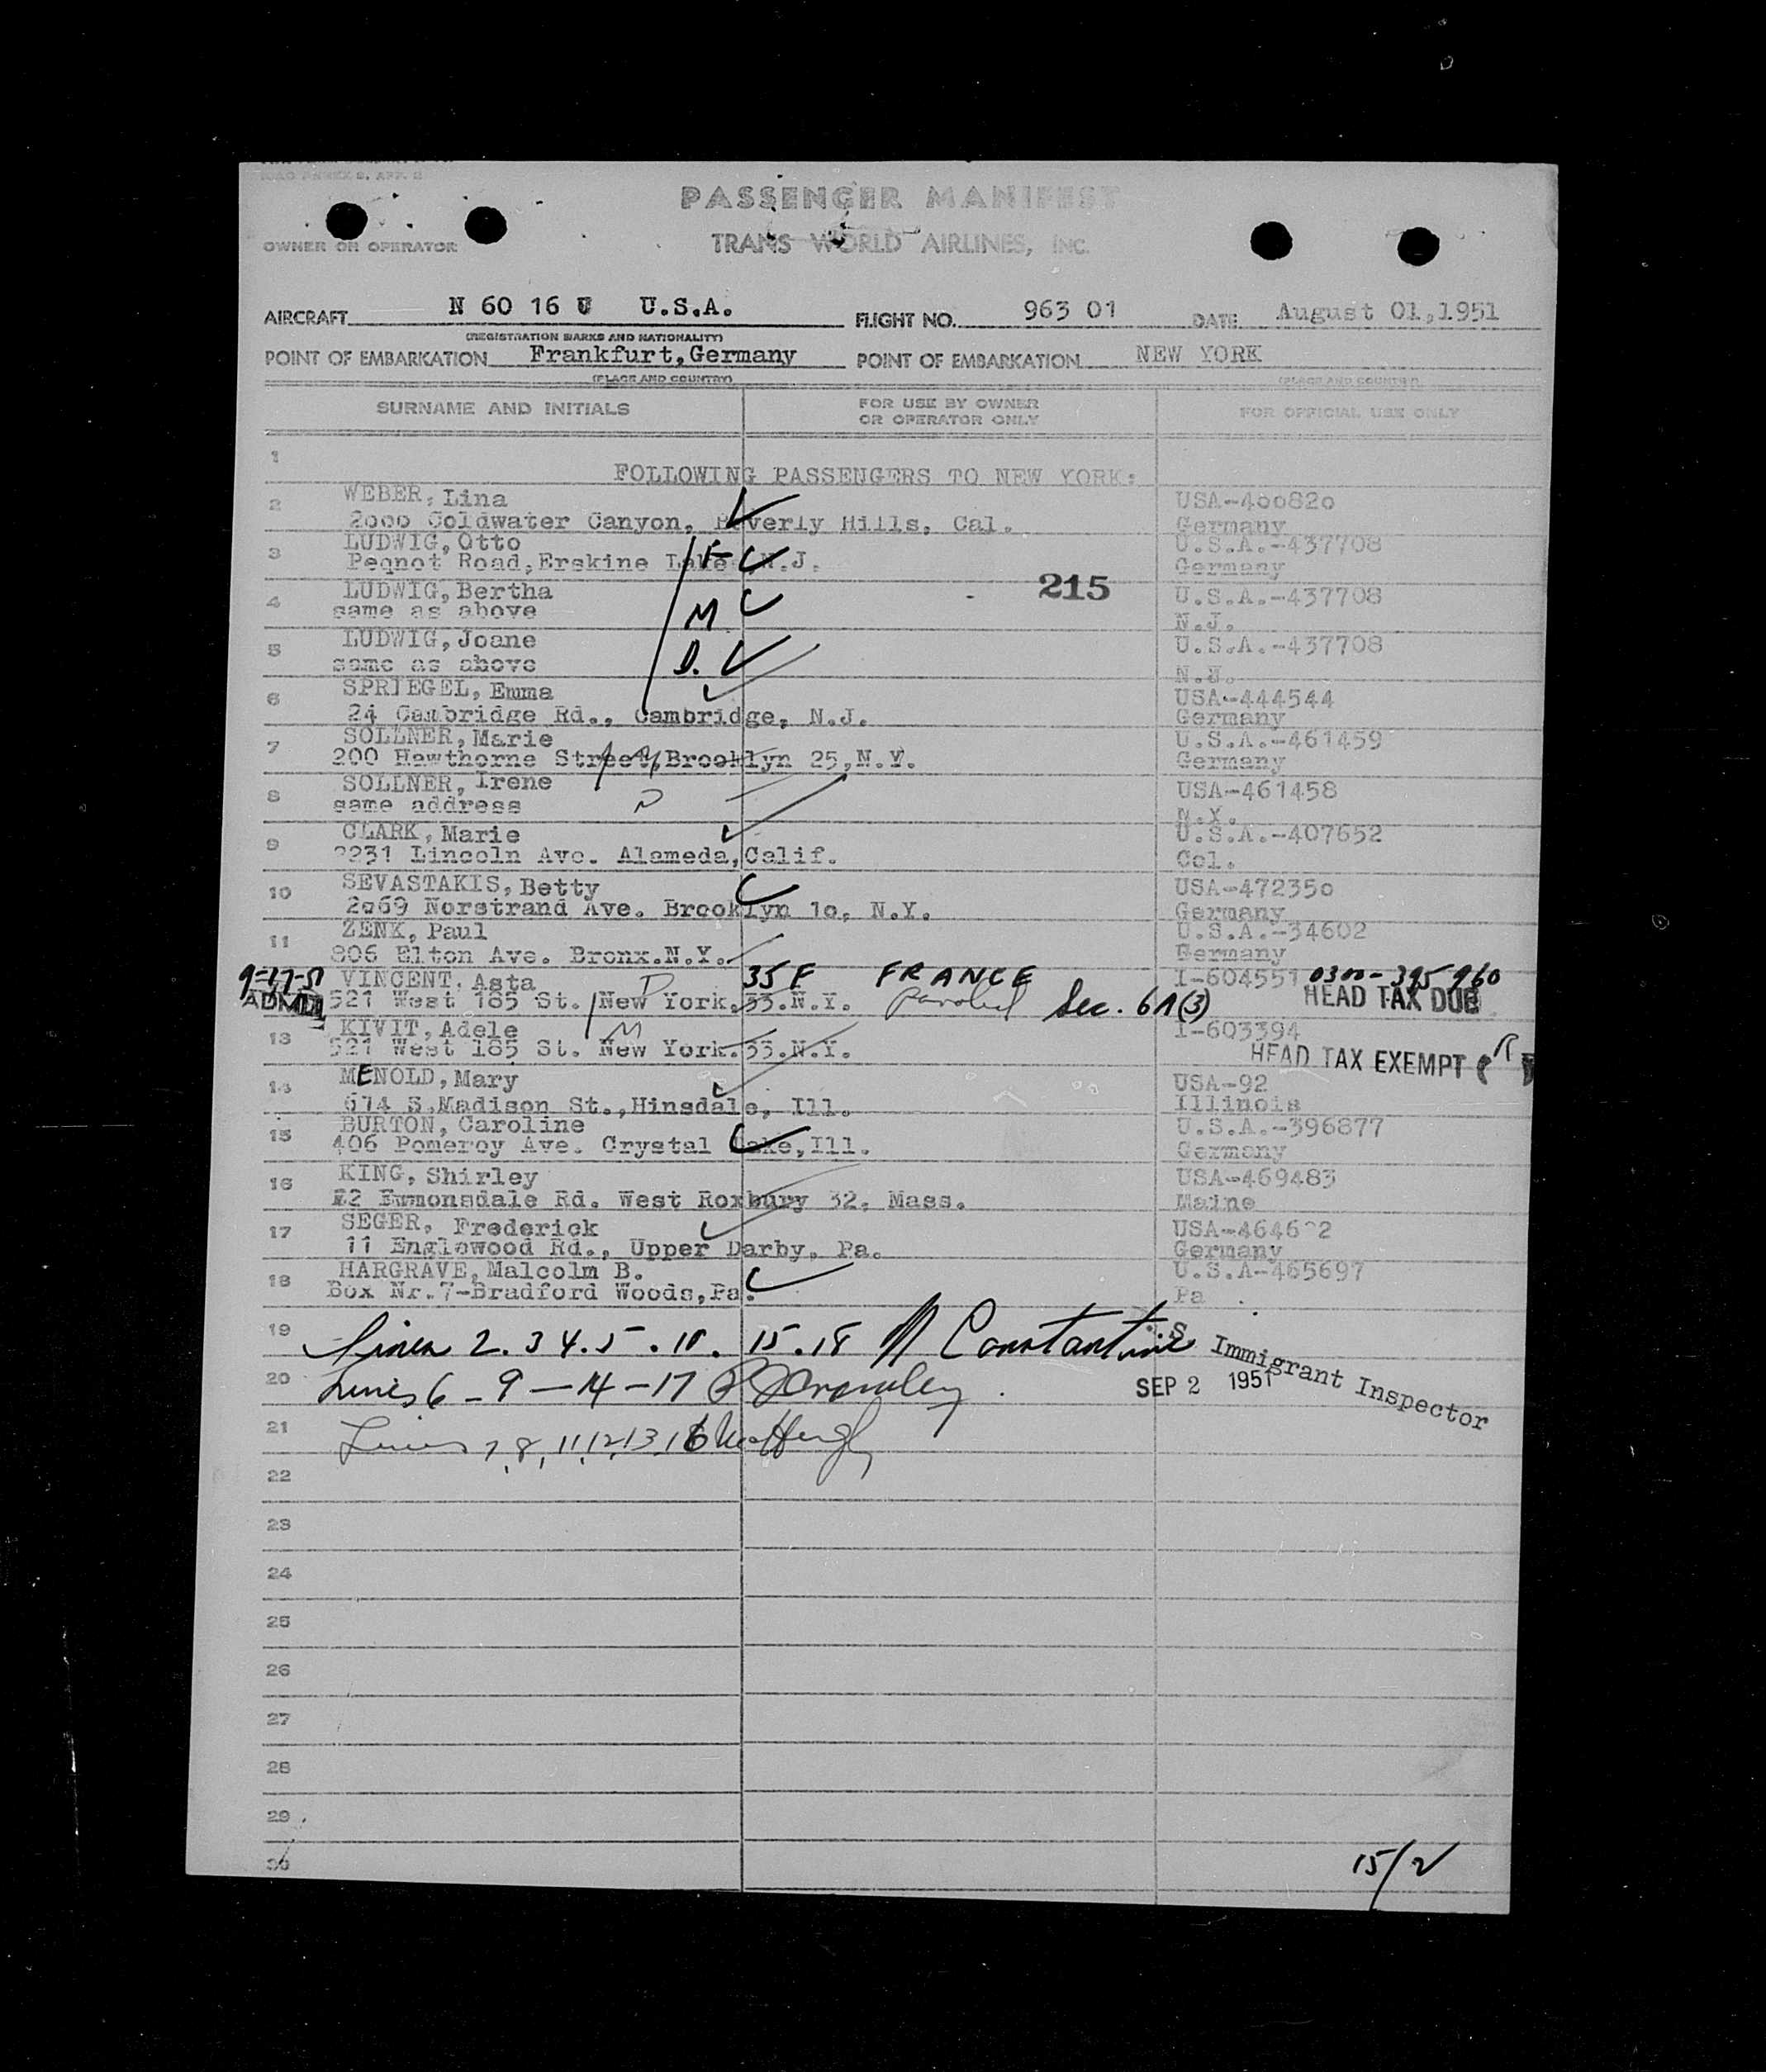 ICAO ANNEX 9, APP. 2
PASSENGER MANIFEST
OWNER OR OPERATOR TRANS WORLD AIRLINES, INC.
AIRCRAFT N 60 16 U U.S.A. FLIGHT NO. 963 01 DATE August 01,1951
(REGISTRATION MARKS AND NATIONALITY)
POINT OF EMBARKATION Frankfurt,Germany POINT OF EMBARKATION NEW YORK
(PLACE AND COUNTRY) (PLACE AND COUNTRY)
SURNAME AND INITIALS FOR USE BY OWNER OR OPERATOR ONLY FOR OFFICIAL USE ONLY
1 FOLLOWING PASSENGERS TO NEW YORK:
2 WEBER, Lina USA-4oo82o
2ooo Coldwater Canyon, Beverly Hills, Cal. Germany
3 LUDWIG, Otto U.S.A.-437708
Peqnot Road,Erskine Lake N.J. F Germany
215
4 LUDWIG, Bertha U.S.A.-437708
same as above M N.J.
5 LUDWIG, Joane U.S.A.-437708
same as above D. N.J.
6 SPRIEGEL, Emma USA-444544
24 Cambridge Rd., Cambridge, N.J. Germany
7 SOLLNER, Marie U.S.A.-461459
200 Hawthorne Street, Brooklyn 25,N.Y. Germany
8 SOLLNER, Irene USA-461458
same address D N.Y.
9 CLARK, Marie U.S.A.-407652
2231 Lincoln Ave. Alameda, Calif. Col.
10 SEVASTAKIS, Betty USA-47235o
2o69 Norstrand Ave. Brooklyn 1o, N.Y. Germany
11 ZENK, Paul U.S.A.-34602
806 Elton Ave. Bronx.N.Y. Germany
9-17-51 VINCENT, Asta D 35F FRANCE I-604551 0300-395960
521 West 185 St. New York.33.N.Y. Paroled Sec. 6A(3) HEAD TAX DUE
13 KIVIT, Adele M I-603394
521 West 185 St. New York.33.N.Y. HEAD TAX EXEMPT
14 MENOLD, Mary USA-92
614 S.Madison St.,Hinsdale, Ill. Illinois
15 BURTON, Caroline U.S.A.-396877
406 Pomeroy Ave. Crystal Lake,Ill. Germany
16 KING, Shirley USA-469483
22 Emmonsdale Rd. West Roxbury 32, Mass. Maine
17 SEGER, Frederick USA-4646 2
11 Englewood Rd., Upper Darby, Pa. Germany
18 HARGRAVE, Malcolm B. U.S.A-465697
Box Nr.7-Bradford Woods,Pa. Pa
19 Lines 2.3 4.5.10. 15.18 Constantine
S. Immigrant Inspector
20 Lines 6 - 9 - 14 - 17 SEP 2 1951
21 Lines 7, 8, 11, 12, 13, 16
22
23
24
25
26
27
28
29
30
15/2